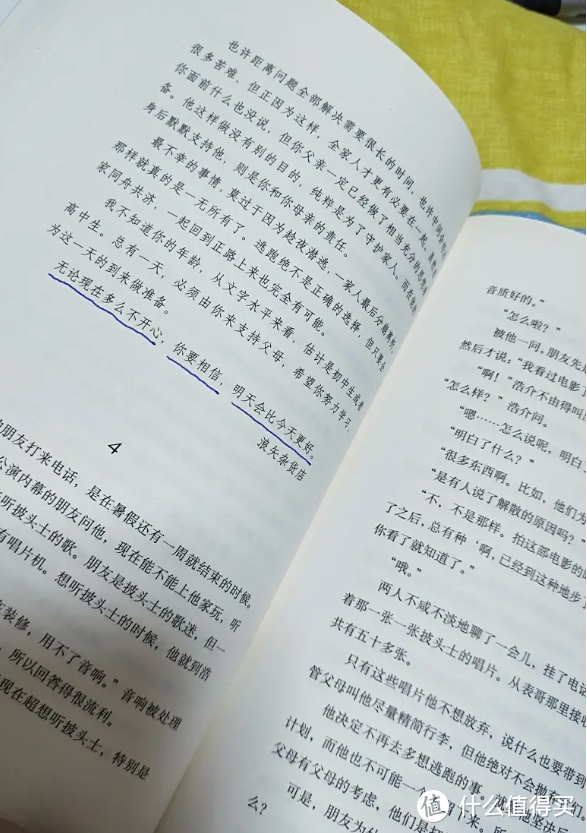 也许距离问题全部解决需要很长的时间，也许中间会
很多苦难，但正因为这样，全家人才更有必要在一起。虽然
你面前什么也没说，但你父亲一定已经做了相当充分的思想
备。他这样做没有别的目的，纯粹是为了守护家人。而在他
身后默默支持他，则是你和你母亲的责任。
最不幸的事情，莫过于因为趁夜潜逃，一家人最后分崩离析，
那样就真的是一无所有了。逃跑绝不是正确的选择，但只要全
家同舟共济，一起回到正路上来也完全有可能。
我不知道你的年龄，从文字水平来看，估计是初中生或者
高中生。总有一天，必须由你来支持父母，希望你努力学习，
为这一天的到来做准备。
无论现在多么不开心，你要相信，明天会比今天更好。
浪矢杂货店
4
朋友打来电话，是在暑假还有一周就结束的时候。
公演内幕的朋友问他，现在能不能上他家玩，听
听披头士的歌。朋友是披头士的歌迷，但一
有唱片机。想听披头士的时候，他就到浩
装修，用不了音响。”音响被处理
，所以回答得很流利。
现在超想听披头士，特别是
音质好的。”
“怎么啦？”
被他一问，朋友先是
然后才说：“我看过电影
“啊！”浩介不由得叫
“怎么样？”浩介问。
“嗯……怎么说呢，明白
“明白了什么？”
“很多东西啊。比如，他们为
“是有人说了解散的原因吗？”
“不，不是那样。拍这部电影的
了之后，总有种‘啊，已经到这种地步了
你看了就知道了。”
“哦。”
两人不咸不淡地聊了一会儿，挂了电话
着那一张一张披头士的唱片。从表哥那里接收
共有五十多张。
只有这些唱片他不想放弃，说什么也要带到
管父母叫他尽量精简行李，但他绝对不会抛弃
他决定不再去多想逃跑的事。
计划，而他也不可能一个人留下来，所
父母有父母的考虑，他们是
可是，朋友为
么？
值 什么值得买